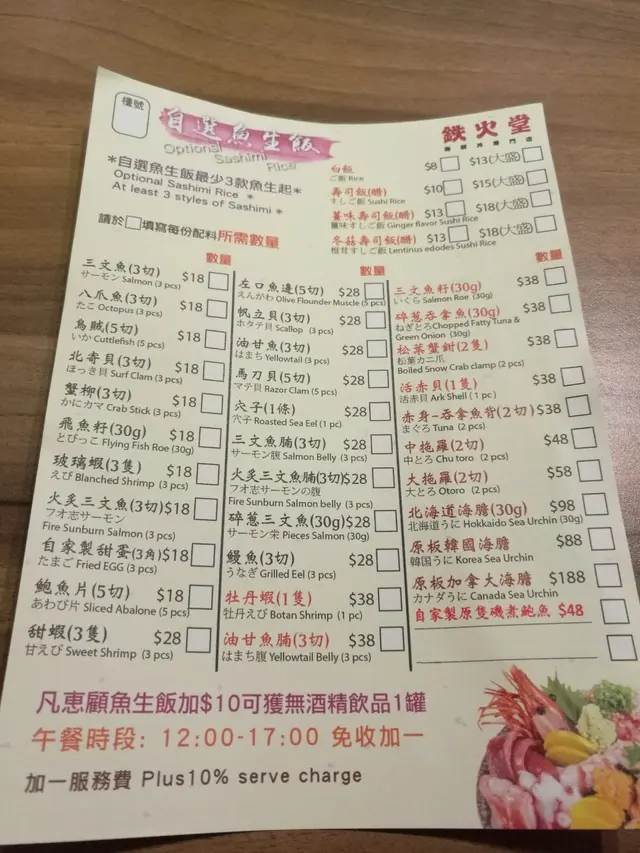 檯號
自選魚生飯
Optional
Sashimi
Rice
鉄火堂
*自選魚生飯最少3款魚生起*
Optional Sashimi Rice *
At least 3 styles of Sashimi *
請於 填寫每份配料所需數量
白飯 $8 $13(大盛)
ご飯 Rice
壽司飯(醋) $10 $15(大盛)
すしご飯 Sushi Rice
薑味壽司飯(醋) $13 $18(大盛)
薑味すしご飯 Ginger flavor Sushi Rice
冬菇壽司飯(醋) $13 $18(大盛)
椎茸すしご飯 Lentinus edodes Sushi Rice
數量
三文魚(3切) $18
サーモン Salmon (3 pcs)
八爪魚(3切) $18
たこ Octopus (3 pcs)
烏賊(5切) $18
いか Cuttlefish (5 pcs)
北寄貝(3切) $18
ほっき貝 Surf Clam (3 pcs)
蟹柳(3切) $18
かにカマ Crab Stick (3 pcs)
飛魚籽(30g) $18
とびっこ Flying Fish Roe (30g)
玻璃蝦(3隻) $18
えび Blanched Shrimp (3 pcs)
火炙三文魚(3切) $18
フオ志サーモン
Fire Sunburn Salmon (3 pcs)
自家製甜蛋(3角) $18
たまご Fried EGG (3 pcs)
鮑魚片(5切) $18
あわび片 Sliced Abalone (5 pcs)
甜蝦(3隻) $28
甘えび Sweet Shrimp (3 pcs)
數量
左口魚邊(5切) $28
えんがわ Olive Flounder Muscle (5 pcs)
帆立貝(3切) $28
ホタテ貝 Scallop (3 pcs)
油甘魚(3切) $28
はまち Yellowtail (3 pcs)
馬刀貝(5切) $28
マテ貝 Razor Clam (5 pcs)
穴子(1條) $28
穴子 Roasted Sea Eel (1 pc)
三文魚腩(3切) $28
サーモン腹 Salmon Belly (3 pcs)
火炙三文魚腩(3切) $28
フオ志サーモンの腹
Fire Sunburn Salmon belly (3 pcs)
碎蔥三文魚(30g) $28
サーモン栄 Pieces Salmon (30g)
鰻魚(3切) $28
うなぎ Grilled Eel (3 pcs)
牡丹蝦(1隻) $38
牡丹えび Botan Shrimp (1 pc)
油甘魚腩(3切) $38
はまち腹 Yellowtail Belly (3 pcs)
數量
三文魚籽(30g) $38
いくら Salmon Roe (30g)
碎蔥吞拿魚(30g) $38
ねぎとろ Chopped Fatty Tuna &
Green Onion (30g)
松葉蟹鉗(2隻) $38
松葉カニ爪
Boiled Snow Crab clamp (2 pcs)
活赤貝(1隻) $38
活赤貝 Ark Shell ( 1 pc )
赤身-吞拿魚背(2切) $38
まぐろ Tuna (2 pcs)
中拖羅(2切) $48
中とろ Chu toro (2 pcs)
大拖羅(2切) $58
大とろ Otoro (2 pcs)
北海道海膽(30g) $98
北海道うに Hokkaido Sea Urchin (30g)
原板韓國海膽 $88
韓国うに Korea Sea Urchin
原板加拿大海膽 $188
カナダうに Canada Sea Urchin
自家製原隻磯煮鮑魚 $48
凡惠顧魚生飯加$10可獲無酒精飲品1罐
午餐時段: 12:00-17:00 免收加一
加一服務費 Plus10% serve charge